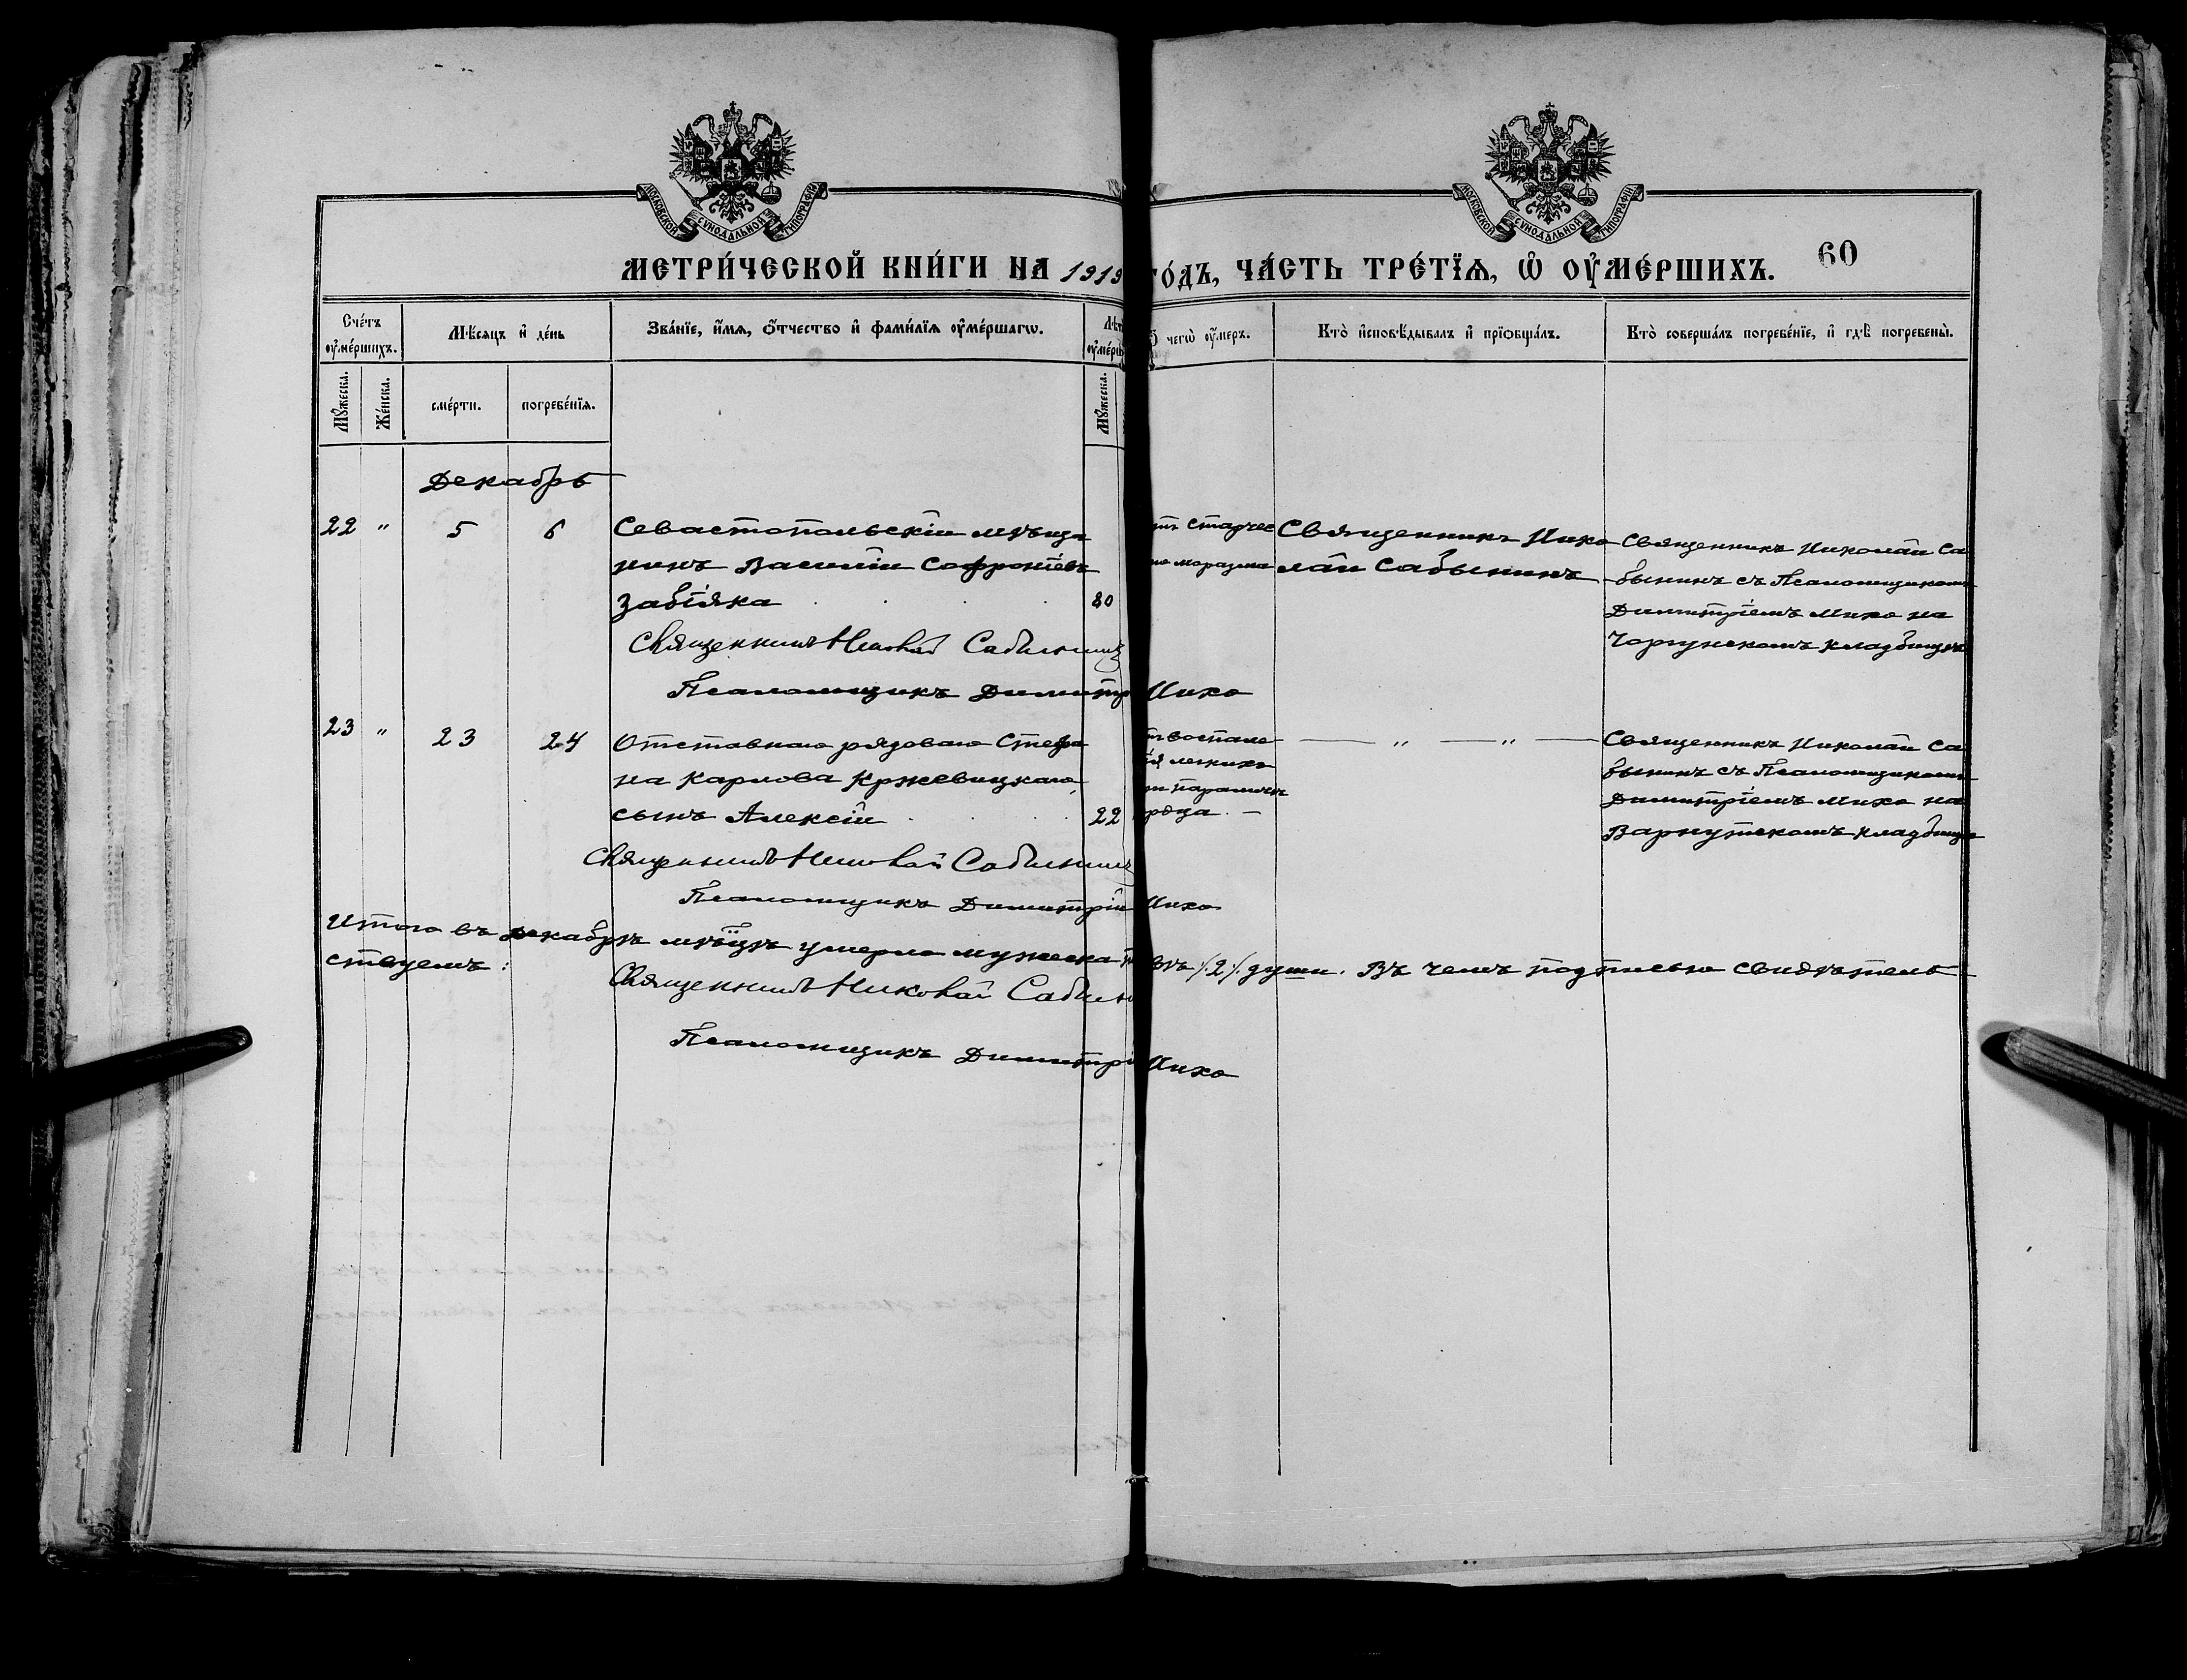 МОСКОВСКОЙ СУНОДАЛЬНОЙ ТИПОГРАФІИ
МОСКОВСКОЙ СУНОДАЛЬНОЙ ТИПОГРАФІИ
МЕТРИ́ЧЕСКОЙ КНИ́ГИ НА 1919 ГО́ДЪ, ЧА́СТЬ ТРЕ́ТЇѦ, Ѡ ОУМЕ́РШИХЪ. 60
Сче́тъ оуме́ршихъ.
Мѣсяцъ и де́нь
Зва́нїе, и́мѧ, о́тчество и фами́лїѧ оуме́ршагѡ.
чегѡ̀ оу́меръ.
Кто̀ и҆сповѣ́дывалъ и҆ прїобща́лъ.
Кто̀ соверша́лъ погребе́нїе, и҆ гдѣ̀ погребены̀.
Мꙋ́жеска.
Же́нска.
сме́рти.
погребе́нїѧ.
Мꙋ́жеска.
Декабрь
22 " 5 6
Севастопольскій мѣща
нинъ Василій Софроніевъ
Забіяка 80
старчес
маразма
Священникъ Нико
лай Сабынинъ
Священникъ Николай Са
бынинъ съ Псаломщикомъ
Димитріемъ Михо на
Чоргунскомъ кладбищѣ
Священникъ Николай Сабынинъ
Псаломщикъ Димитр Михо
23 " 23 24
Отставного рядового Стефа
на Карлова Кржевицкаго,
сынъ Алексій 22
воспале
легкихъ
параличъ
рдца. —
— " — " —
Священникъ Николай Са
бынинъ съ Псаломщикомъ
Димитріемъ Михо на
Варнутскомъ кладбище
Священникъ Николай Сабынинъ
Псаломщикъ Димитрій Михо
Итого въ декабрѣ мѣсяцѣ умерло мужеска п 2 души. Въ чемъ подписью свидѣтель
ствуемъ:
Священникъ Николай Сабын
Псаломщикъ Димитрі Михо